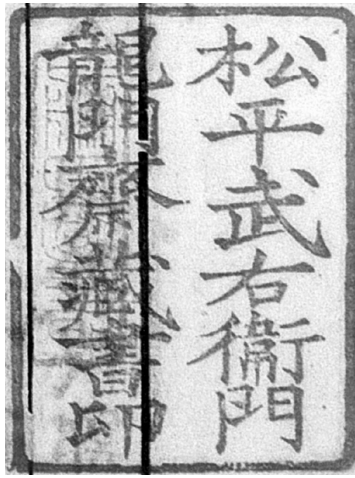 松平武右衛門
龍門齋藏書印